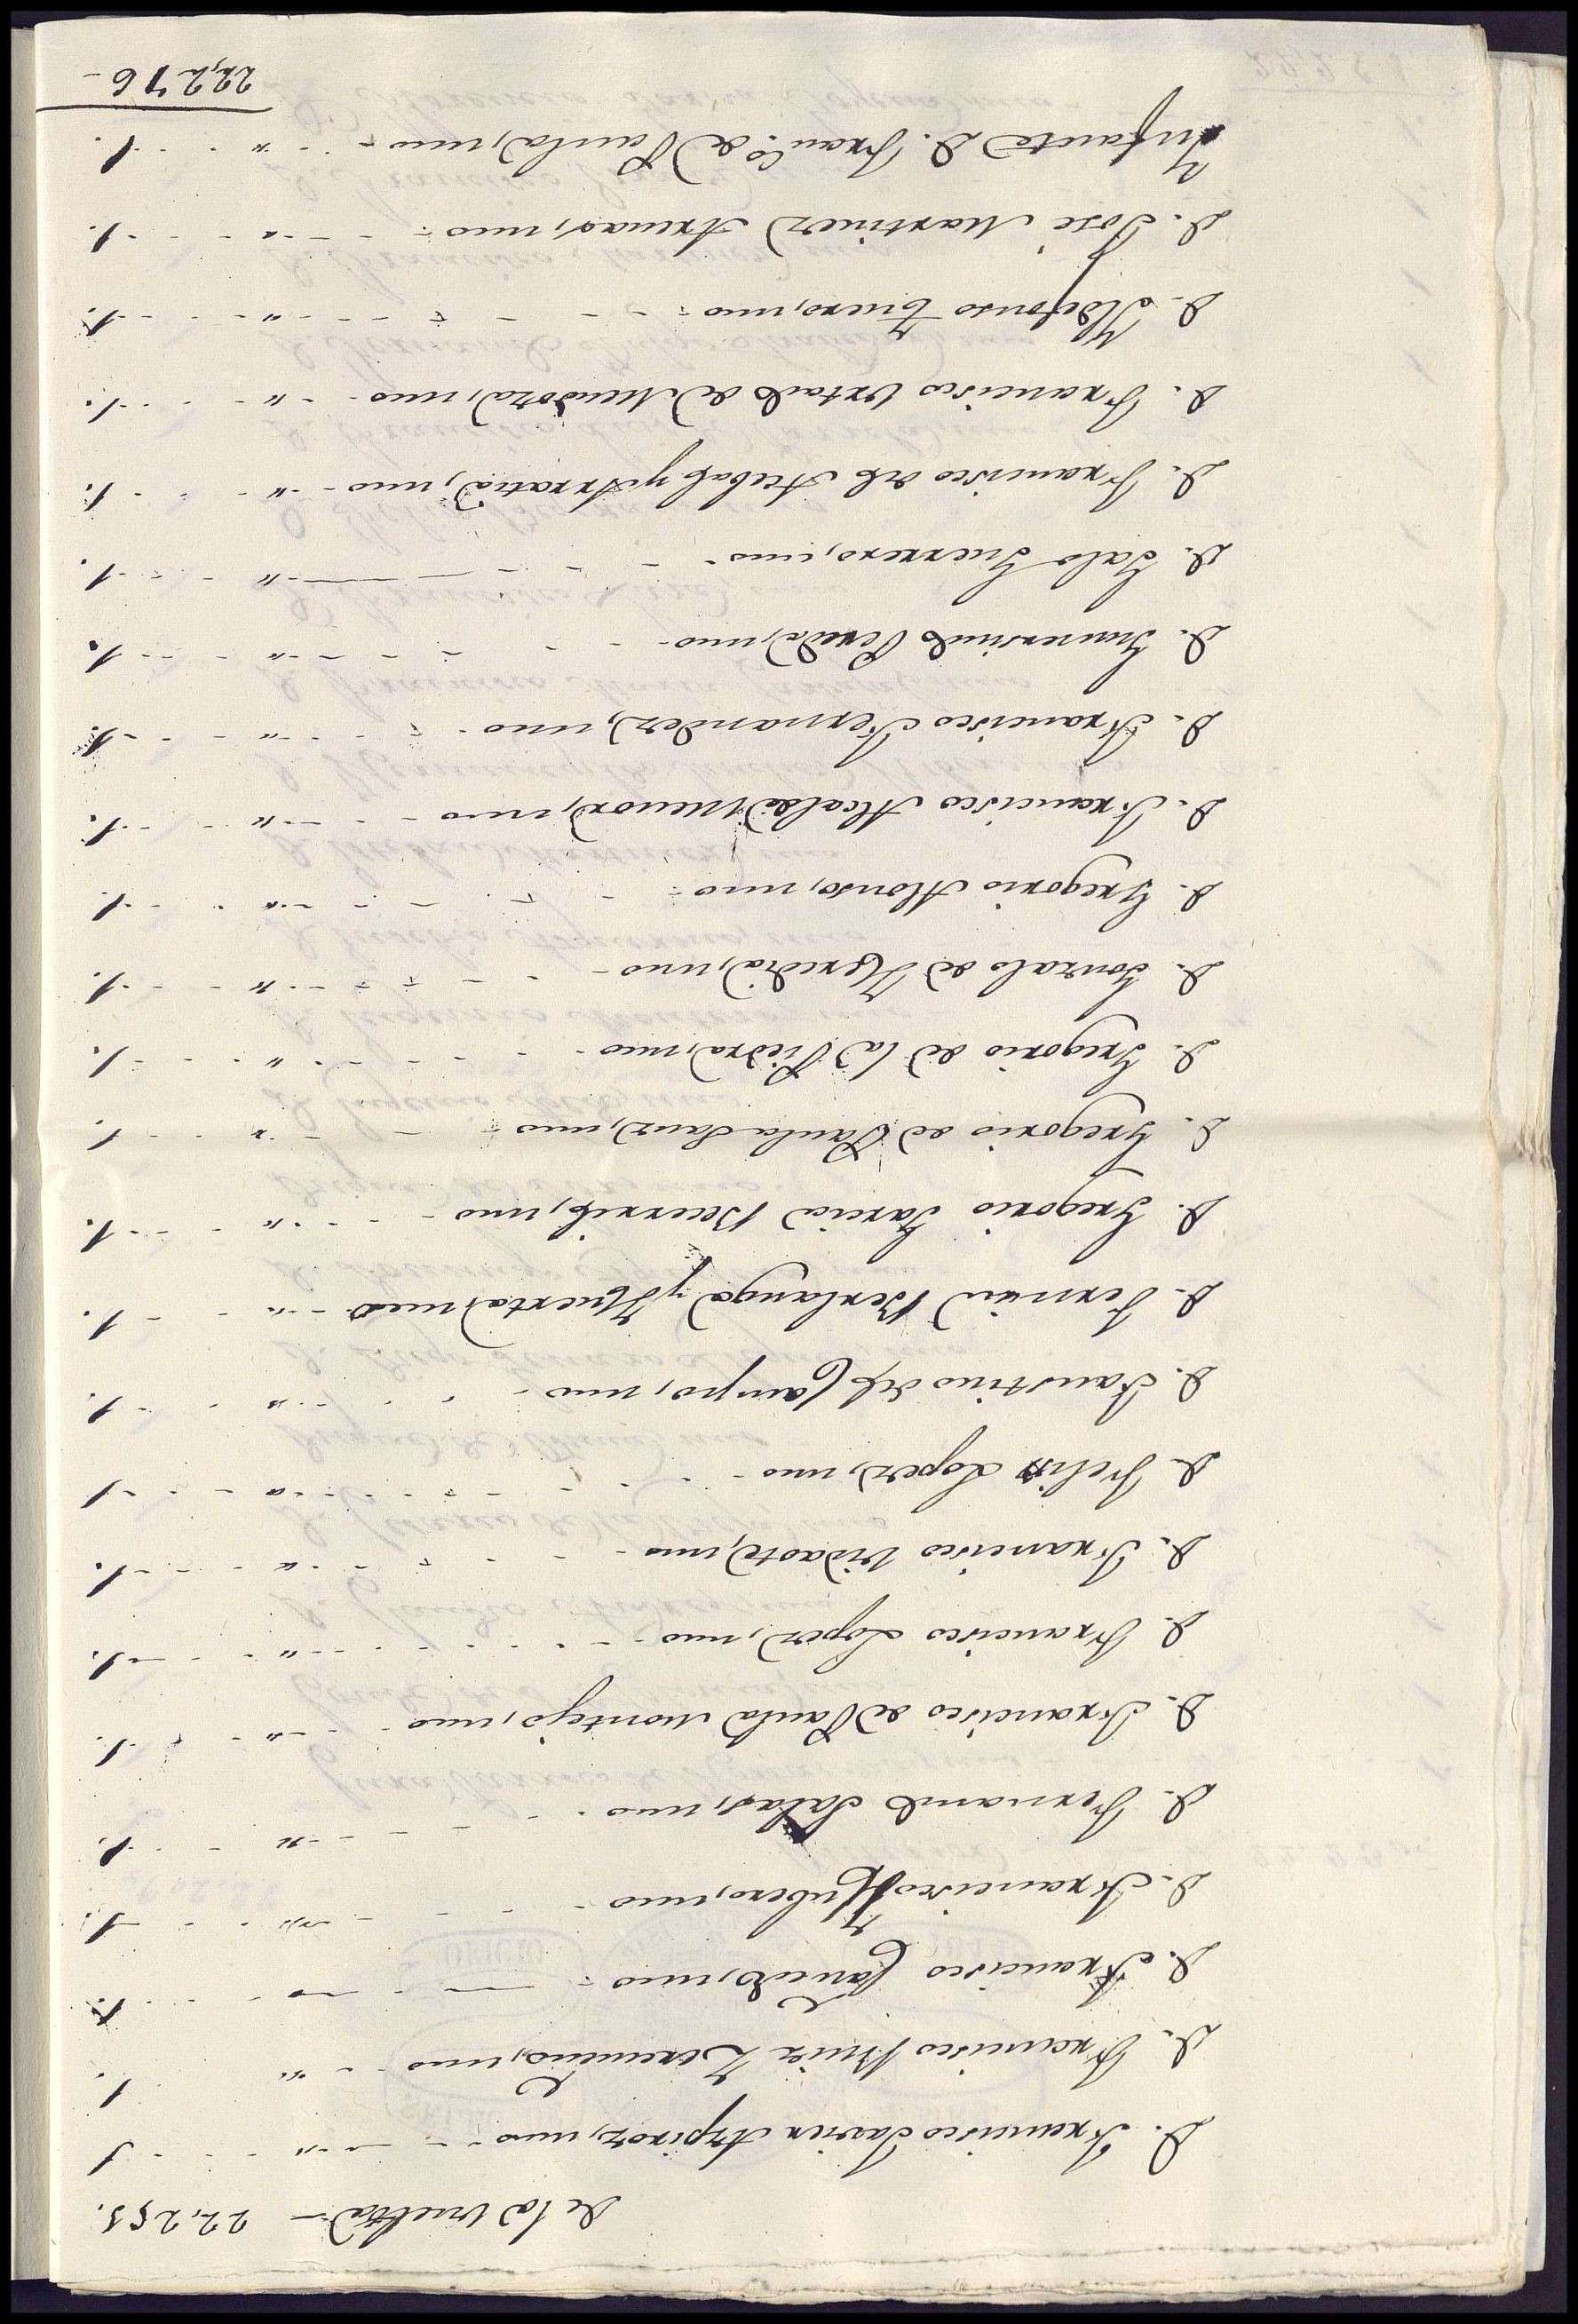 De la vuelta 22,251.
D. Francisco Javier Azpiroz, uno " 1
D. Francisco Ruiz uno " 1.
D. Francisco Canedo, uno " 1.
D. Francisco uno " 1.
D. Fernando Salas, uno " 1.
D. Francisco de Paula Montejo, uno " 1.
D. Francisco Lopez, uno " 1.
D. Francisco uno " 1.
D. Felix Lopez, uno " 1
D. Faustino del Campo, uno " 1.
D. Fermin Berlanga y Huerta, uno " 1.
D. Gregorio Garcia Becerril, uno " 1.
D. Gregorio de Paula Sanz, uno " 1.
D. Gregorio de la Piedra, uno " 1.
D. Gonzalo de Heredia, uno " 1.
D. Gregorio Alonso, uno " 1.
D. Francisco Alcalde Menor, uno " 1.
D. Francisco Fernandez, uno " 1.
D. Gumersindo Pereda, uno " 1.
D. Galo Guerrero, uno " 1.
D. Francisco del Acebal y Arratia, uno " 1.
D. Francisco Urtado de Mendoza, uno " 1.
D. Ildefonso uno " 1.
D. José Martinez uno " 1.
Infante D. Franco de Paula, uno " 1.
22,276